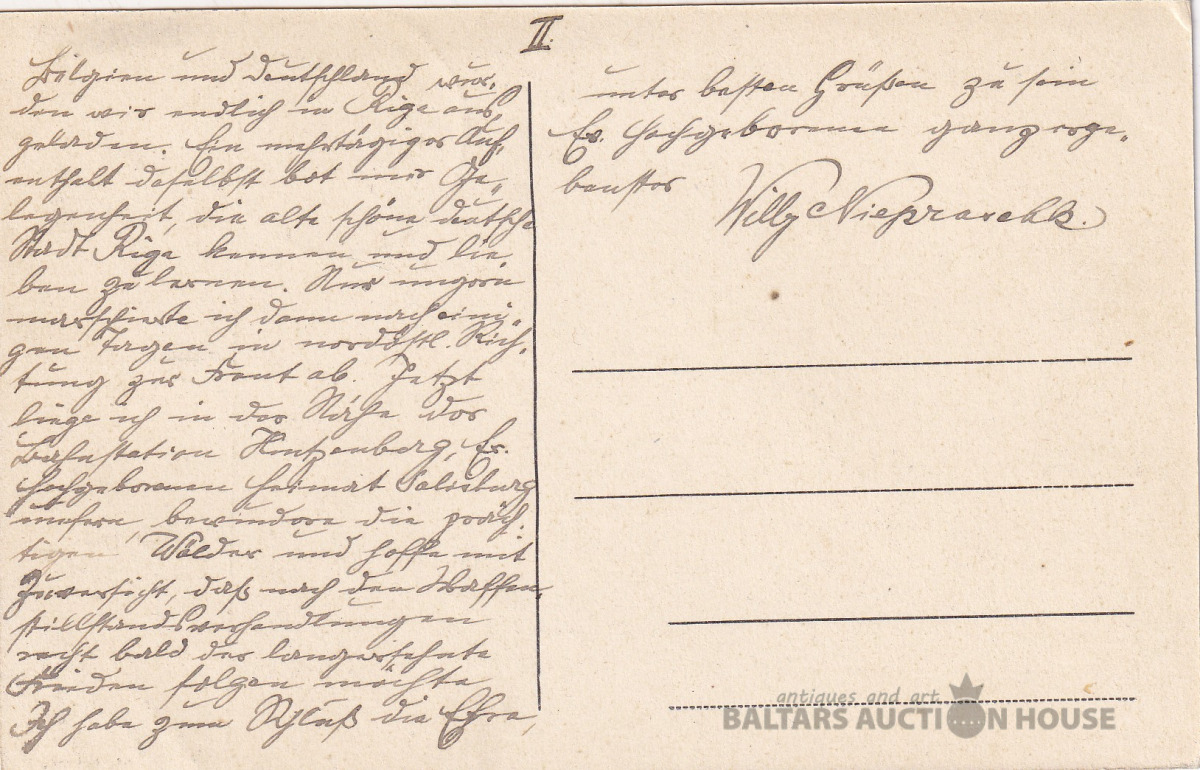 II.
Belgien und Deutschland wur-
den wir endlich in Riga aus-
geladen. Ein mehrtägiger Auf-
enthalt daselbst bot mir Ge-
legenheit, die alte schöne deutsche
Stadt Riga kennen und lie-
ben zu lernen. Nur ungern
marschierte ich dann nach eini-
gen Tagen in nordöstl. Rich-
tung zur Front ab. Jetzt
liege ich in der Nähe der
Bahnstation Hintzenberg, Ew.
Hochgeboren Heimat Salisburg
bewundere die präch-
tigen Wälder und hoffe mit
Zuversicht, daß nach den Waffen-
stillstandsverhandlungen
recht bald der langersehnte
Frieden folgen möchte
Ich habe zum Schluß die Ehre,
unter besten Grüßen zu sein
Ew. Hochgeboren ganz erge-
benster
Willy
antiques and art
BALTARS AUCTION HOUSE